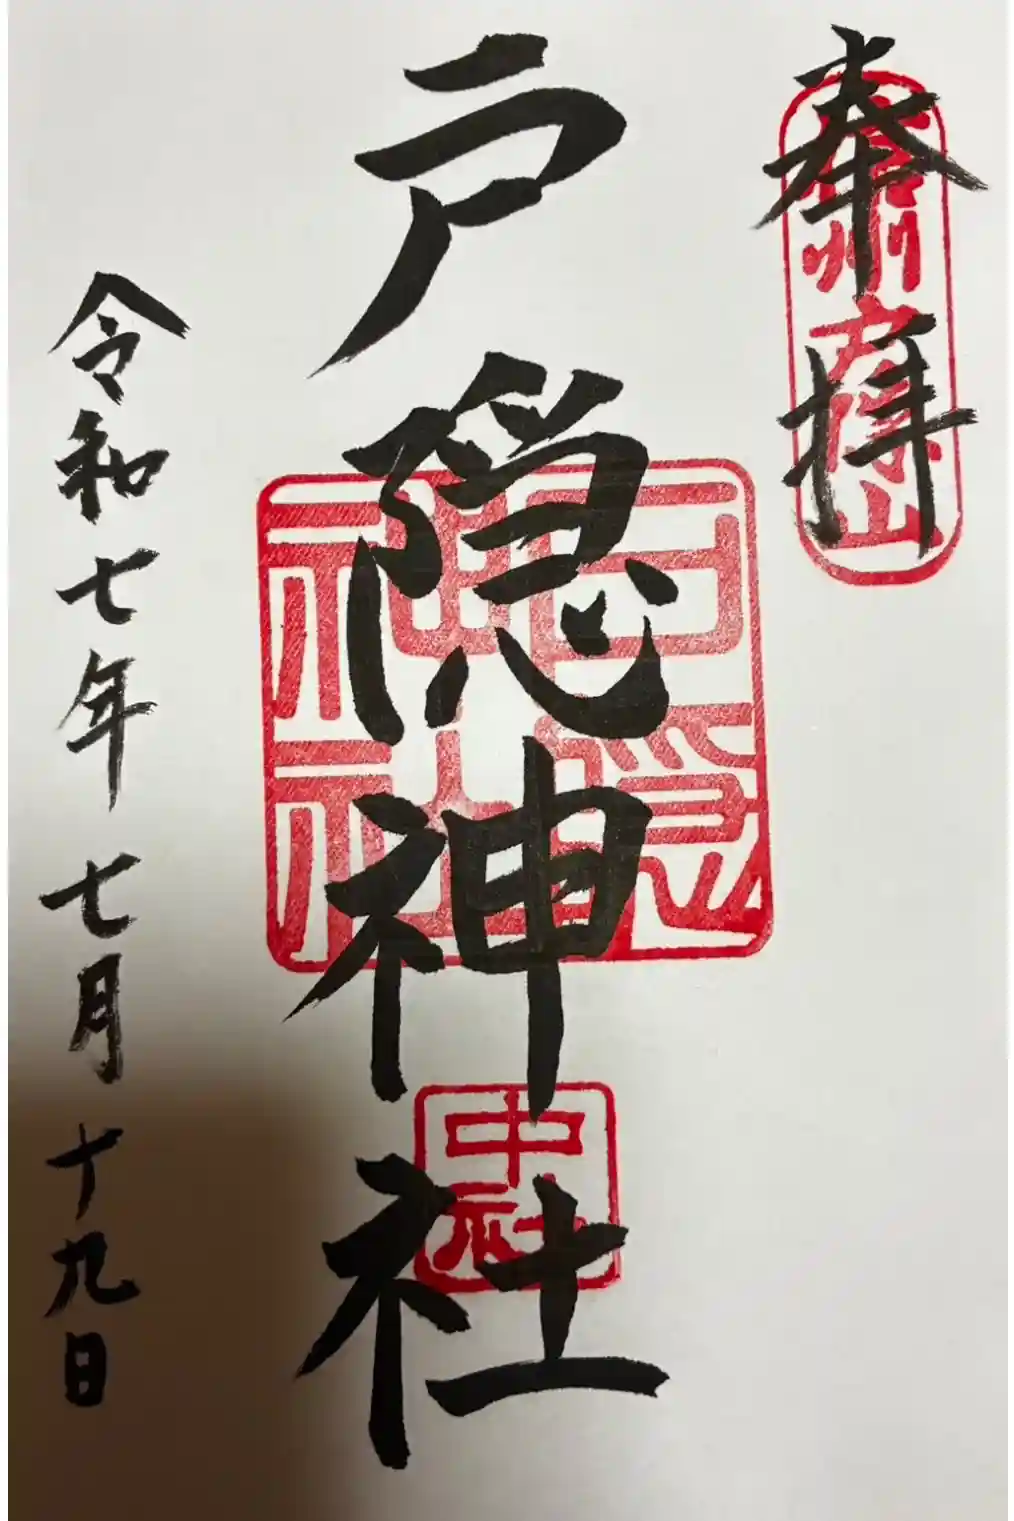 奉拝
信州戸隠山
戸隠神社
戸隠
神社
中社
令和七年 七月十九日